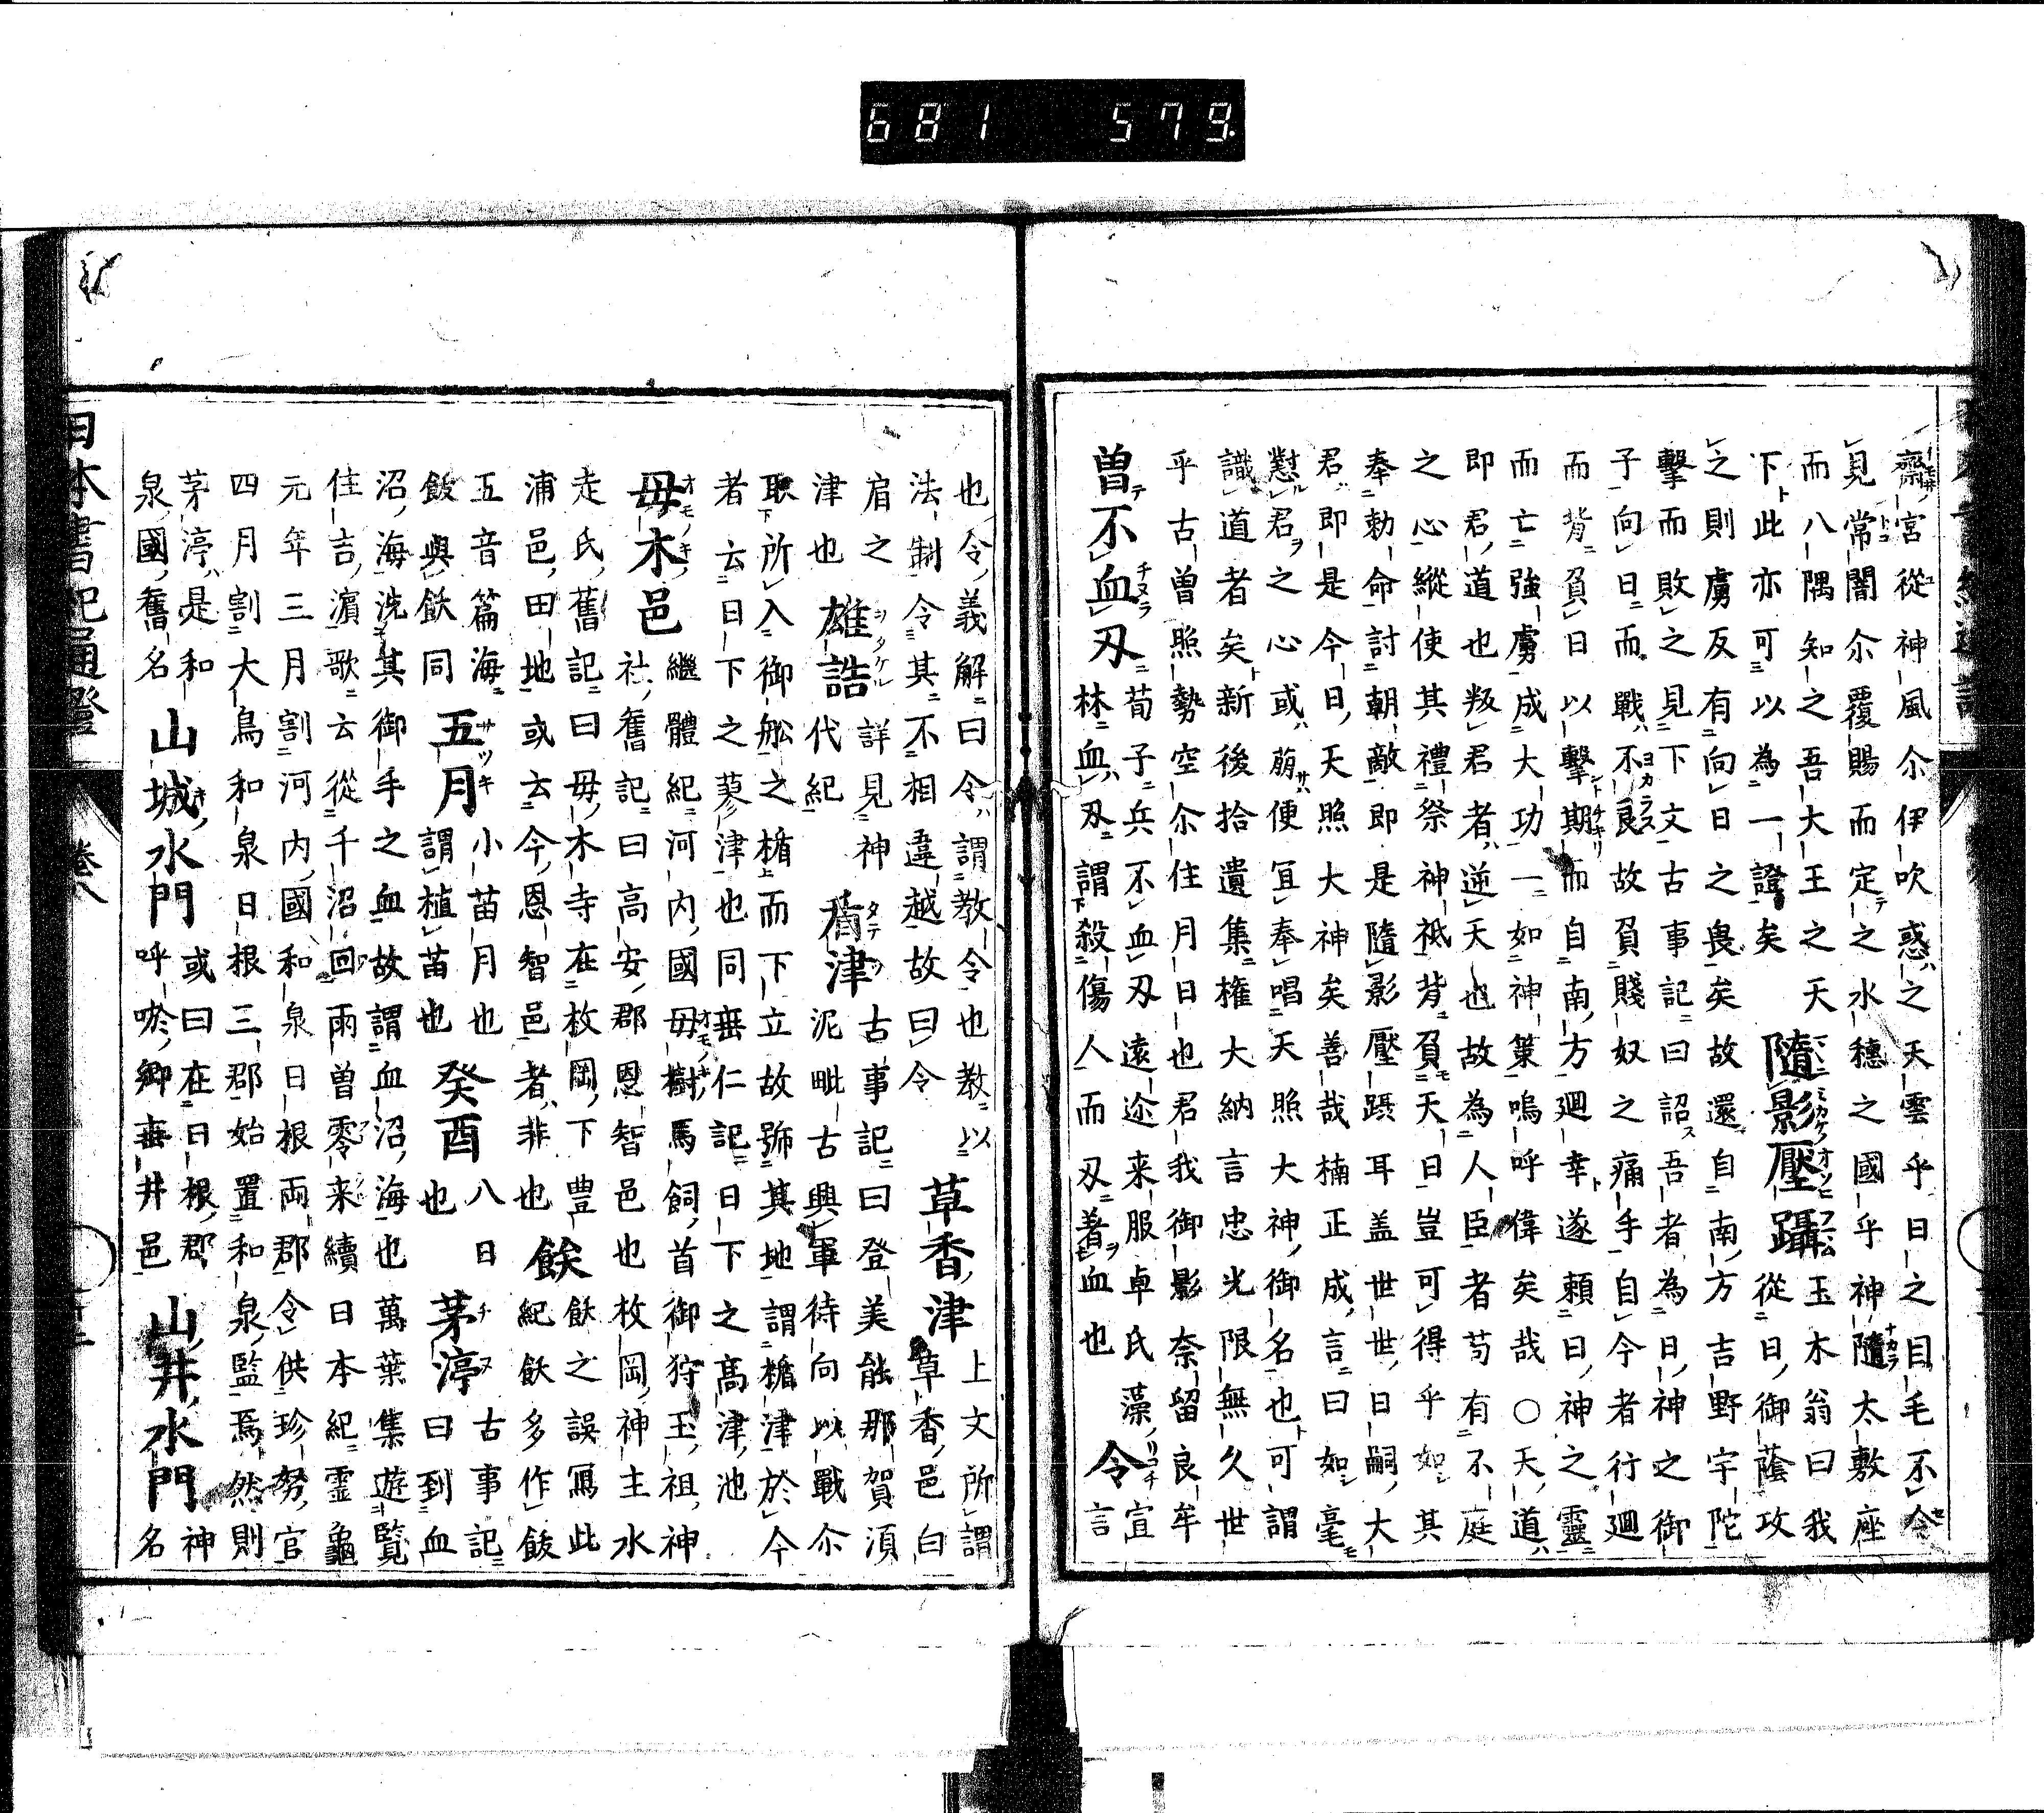 681 579.
齋宮從神風尒伊吹惑之天雲乎日之目毛不令
見常闇尒覆賜而定之水穗之國乎神隨太敷座
而八隅知之吾大王之天 隨影壓躡 玉木翁曰我
下此亦可以為一證矣 從日御蔭攻
之則虜反有向日之畏矣故還自南方吉野宇陀
擊而敗之見下文古事記曰詔吾者為日神之御
子向日而戰不良故負賤奴之痛手自今者行迴
而背負日以擊期而自南方迴幸遂頼日神之靈
而亡強虜成大功一如神策嗚呼偉矣哉○天道
即君道也叛君者逆天也故為人臣者苟有不庭
之心縱使其禮祭神祇背負天日豈可得乎如其
奉勅命討朝敵即是隨影壓躡耳盖世世日嗣大
君即是今日天照大神矣善哉楠正成言曰如毫
懟君之心或萠便宜奉唱天照大神御名也可謂
識道者矣新後拾遺集權大納言忠光限無久世
乎古曾照勢空尒住月日也君我御影奈留良牟
曽不血刃 荀子兵不血刃遠迩来服卓氏藻 宜
林血刃謂殺傷人而刃著血也 令 言
也令義解曰令謂教令也教以 草香津 上文所謂
法制令其不相違越故曰令 草香邑白
肩之 雄誥 詳見神 盾津 古事記曰登美能那賀須
津也 代紀 泥毗古興軍待向以戰尒
取所入御舩之楯而下立故號其地謂楯津於今
者云日下之蓼津也同垂仁記日下之高津池
母木邑 繼體紀河内國母樹馬飼首御狩玉祖神
社舊記曰高安郡恩智邑也枚岡神主水
走氏舊記曰母木寺在枚岡下豊 飫之誤冩此
浦邑田地或云今恩智邑者非也 餘 紀飫多作飯
五音篇海 五月 小苗月也 癸酉 八日 茅渟 古事記
飯與飫同 謂植苗也 也 曰到血
沼海洗其御手之血故謂血沼海也萬葉集遊覧
住吉濵歌云從千沼回雨曽零来續日本紀霊龜
元年三月割河内國和泉日根兩郡令供珍努官
四月割大鳥和泉日根三郡始置和泉監焉然則
茅渟是和 山城水門 或曰在日根郡 山井水門 神
泉國舊名 呼唹卿垂井邑 名
日本書紀通證 卷八